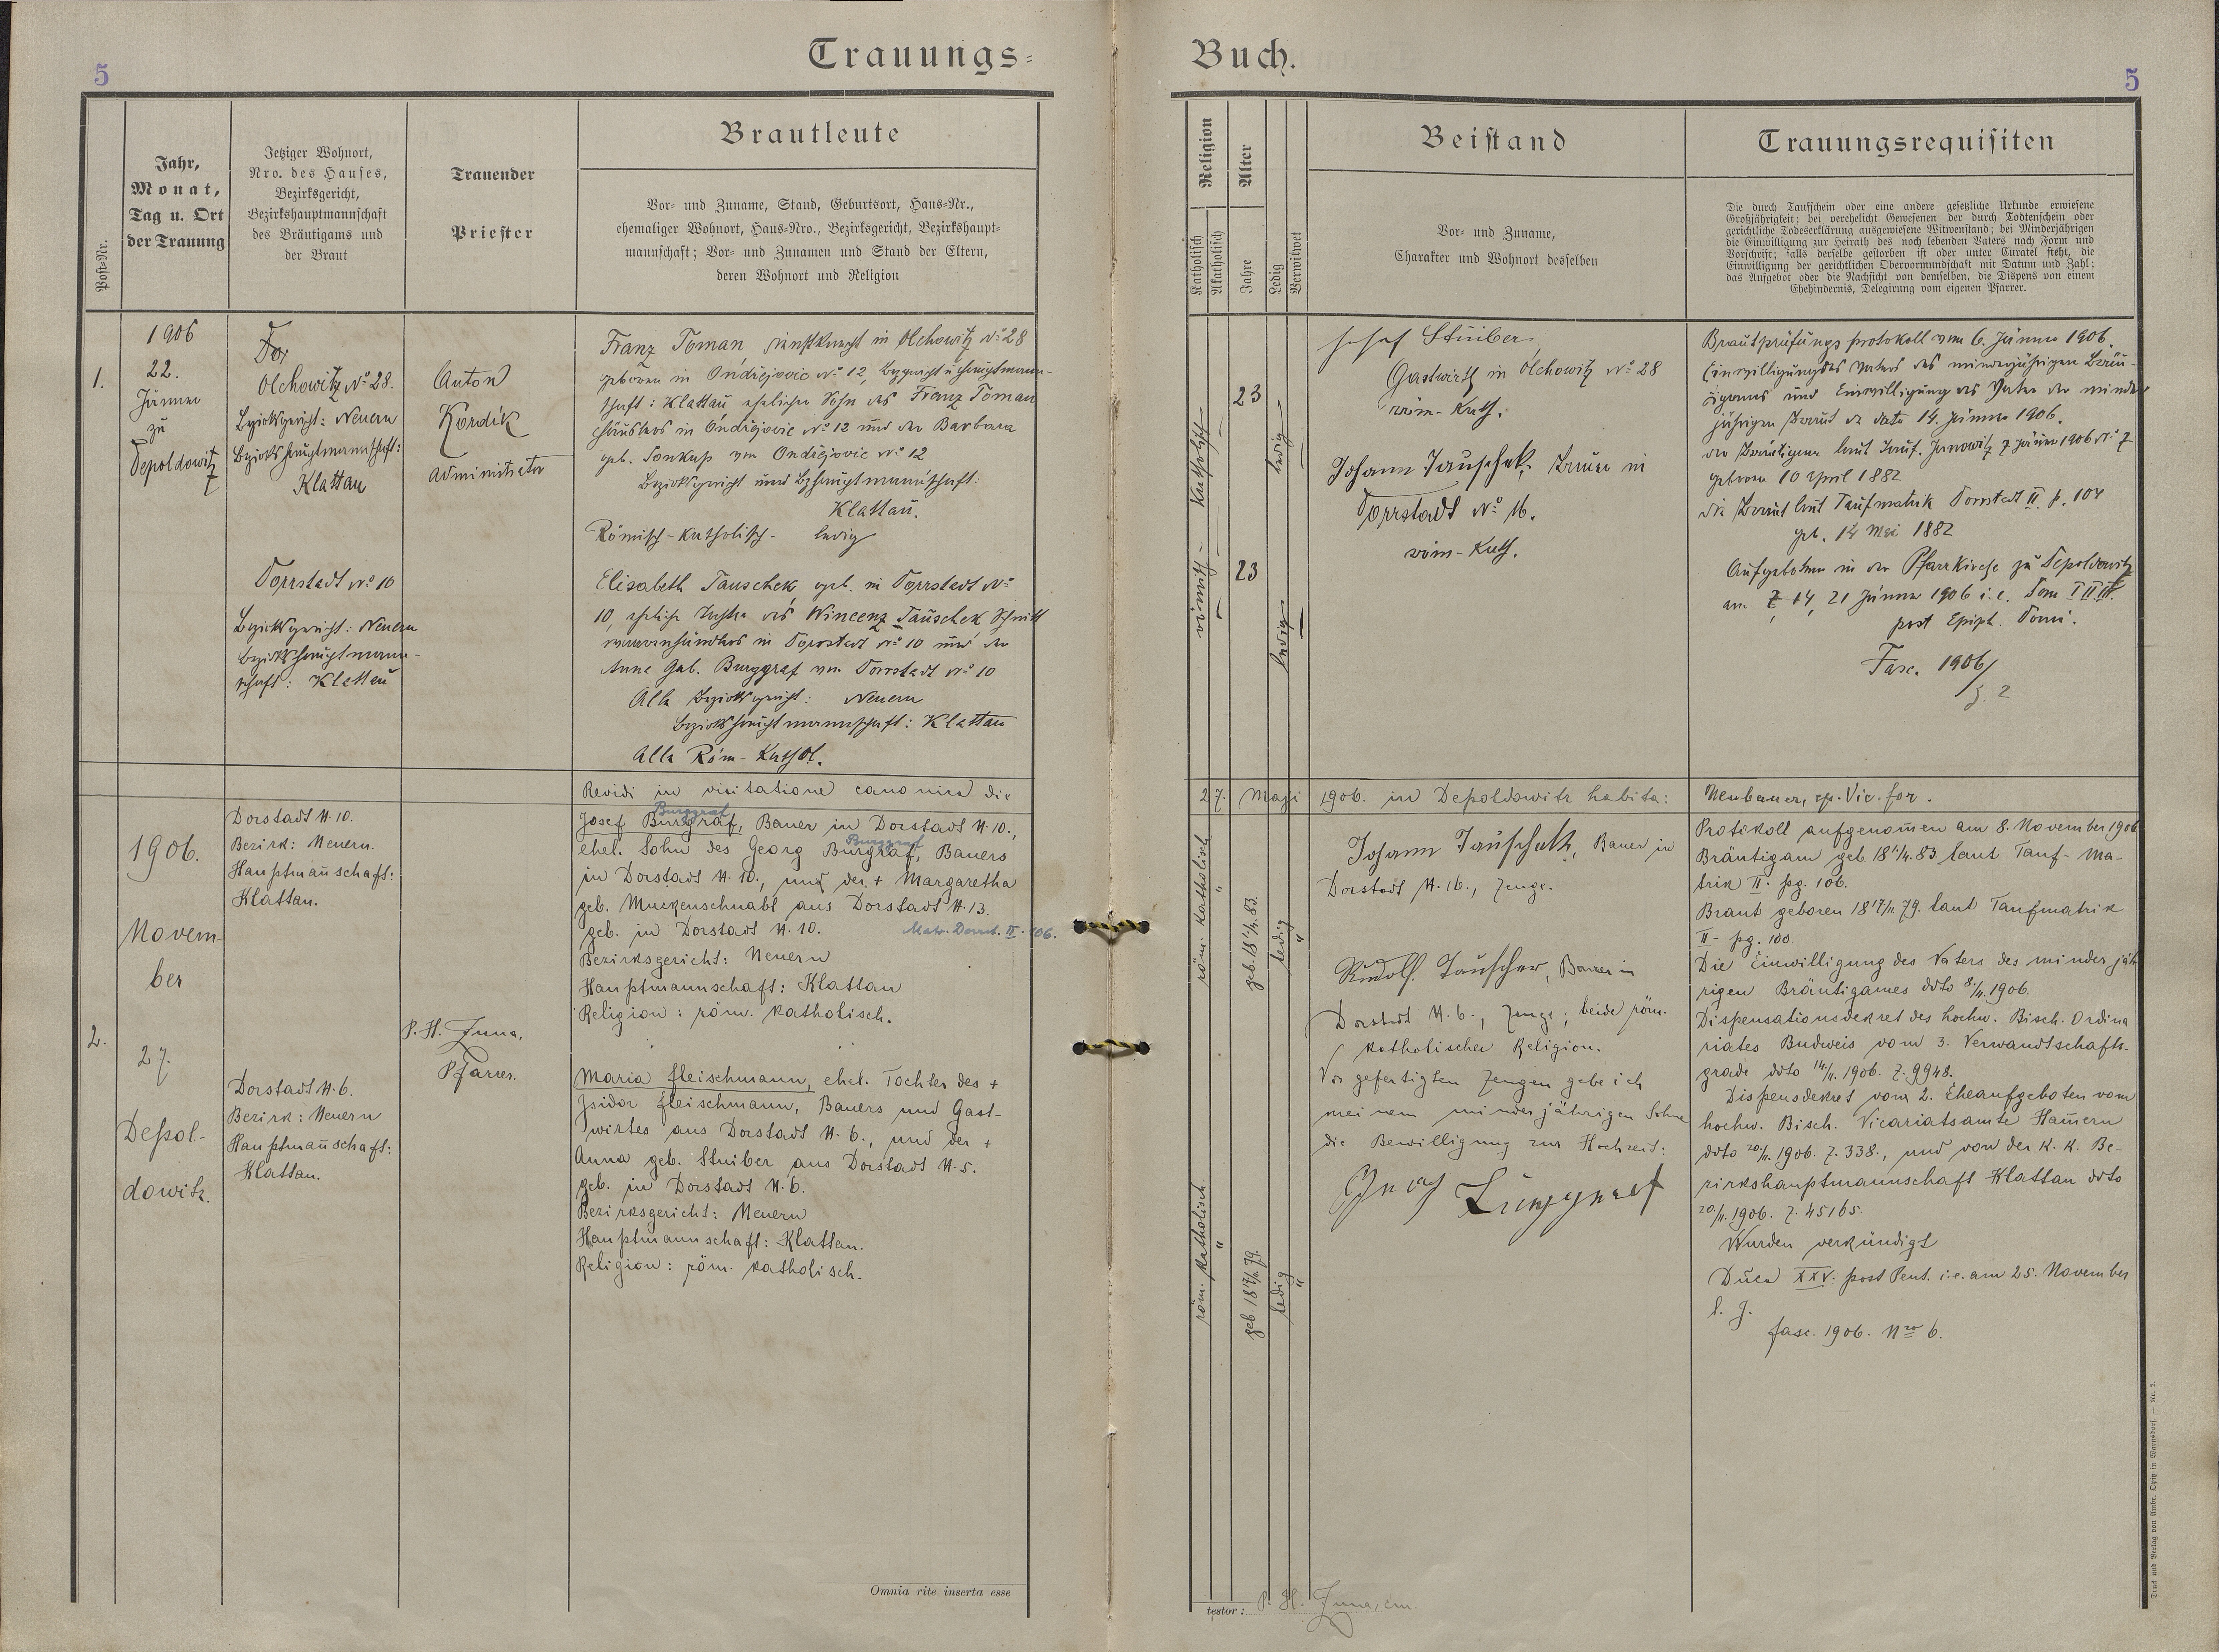 5
Trauungs=
Post=Nr.
Jahr,
Monat,
Tag u. Ort
der Trauung
Jetziger Wohnort,
Nro. des Hauses,
Bezirksgericht,
Bezirkshauptmannschaft
des Bräutigams und
der Braut
Trauender
Priester
Brautleute
Vor= und Zuname, Stand, Geburtsort, Haus=Nr.,
ehemaliger Wohnort, Haus=Nro., Bezirksgericht, Bezirkshaupt=
mannschaft; Vor= und Zunamen und Stand der Eltern,
deren Wohnort und Religion
1.
1906
22.
Jänner
zu
Depoldowitz
Olchowitz No 28.
Bezirksgericht: Neuern
Bezirkshauptmannschaft:
Klattau
Dorrstadt No 10
Bezirksgericht: Neuern
Bezirkshauptmann-
schaft: Klattau
Anton
Kordik
Administrator
Franz Toman, in Olchowitz No 28
geboren in Ondřejovic No 12, Bezgericht u Hauptmann-
schaft: Klattau ehelicher Sohn des Franz Toman
Häuslers in Ondřejovic No 12 und der Barbara
geb. von Ondřejovic No 12
Bezirksgericht und Bzhauptmannschaft:
Klattau.
Römisch-katholisch - ledig
Elisabeth Tauschek, geb. in Dorrstadt No
10, eheliche Tochter des Wincenz Tauschek
in Dorrstadt No 10 und der
Anna Geb. Burggraf von Dorrstadt No 10
Alle Bezirksgericht: Neuern
Bezirkshauptmannschaft: Klattau
Alle Röm-Kathol.
Revidi in visitatione canonica die
2.
1906.
Novem-
ber
27.
Depol-
dowitz.
Dorstadt N. 10.
Bezirk: Neuern.
Hauptmañschaft:
Klattau.
Dorstadt N. 6.
Bezirk: Neuern
Hauptmañschaft:
Klattau.
P. H. Juna,
Pfarrer.
Burggraf
Josef Burgraf, Bauer in Dorstadt N. 10.,
Burggraf
ehel. Sohn des Georg Burgraf, Bauers
in Dorstadt N. 10., und der + Margaretha
geb. Muckenschnabl aus Dorstadt N. 13.
geb. in Dorstadt N. 10.
Matr. Dorst. II. 106.
Bezirksgericht: Neuern
Hauptmannschaft: Klattau
Religion: röm. katholisch.
Maria Fleischmann, ehel. Tochter des +
Isidor Fleischmann, Bauers und Gast-
wirtes aus Dorstadt N. 6., und der +
Anna geb. Stuiber aus Dorstadt N. 5.
geb. in Dorstadt N. 6.
Bezirksgericht: Neuern
Hauptmannschaft: Klattau.
Religion: röm. katholisch.
Omnia rite inserta esse
Buch.
5
Religion
Katholisch
Akatholisch
Alter
Jahre
Ledig
Verwitwet
Beistand
Vor= und Zuname,
Charakter und Wohnort desselben
Trauungsrequisiten
Die durch Taufschein oder eine andere gesetzliche Urkunde erwiesene
Großjährigkeit; bei verehelicht Gewesenen der durch Todtenschein oder
gerichtliche Todeserklärung ausgewiesene Witwenstand; bei Minderjährigen
die Einwilligung zur Heirath des noch lebenden Vaters nach Form und
Vorschrift; falls derselbe gestorben ist oder unter Curatel steht, die
Einwilligung der gerichtlichen Obervormundschaft mit Datum und Zahl;
das Aufgebot oder die Nachsicht von demselben, die Dispens von einem
Ehehindernis, Delegirung vom eigenen Pfarrer.
römisch - katholisch
23
23
ledig
ledig
Josef Stuiber
Gastwirth in Olchowitz No 28
röm-Kath.
Johann Tauschek, Bauer in
Dorrstadt No 16.
röm-Kath.
Brautprüfungsprotokoll vom 6. Jänner 1906.
Einwilligung des Vaters des minderjährigen Bräu-
tigams und Einwilligung des Vaters der minder
jährigen Braut de dato 14. Jänner 1906.
der Bräutigam laut Tauf. Janowitz 7 Jänner 1906 No 7
geboren 10 April 1882
die Braut laut Taufmatrik Dorrstadt II p. 104
geb. 14 Mai 1882
Aufgeboten in der Pfarrkirche zu Depoldowitz
am 7, 14, 21 Jänner 1906 i. e. Dom I II III.
post Epiph. Domi.
Fasc. 1906/
z. 2
27. Maji 1906. in Depoldowitz habita:
Neubauer, ep. Vic. for.
röm. katholisch
"
geb. 18 1/4. 83.
ledig
"
röm. katholisch.
"
geb. 18 17/11. 79.
ledig
"
Johann Tauschek, Bauer in
Dorstadt N. 16., Zeuge.
Rudolf Tauscher, Bauer in
Dorstadt N. 6., Zeuge; beide röm.
katholischer Religion.
Vor gefertigten Zeugen gebe ich
meinem minderjährigen Sohne
die Bewilligung zur Hochzeit:
Georg Burggraf
Protokoll aufgenom̄en am 8. November 1906
Bräutigam geb 18 1/4. 83. laut Tauf-Ma-
trik II. pg. 106.
Braut geboren 18 17/11. 79. laut Taufmatrik
II - pg. 100.
Die Einwilligung des Vaters des minderjäh
rigen Bräutigames ddto 8/11. 1906.
Dispensationsdekret des hochw. Bisch. Ordina
riates Budweis vom 3. Verwandtschafts-
grade ddto 14/11. 1906. Z. 9948.
Dispensdekret vom 2. Eheaufgeboten vom
hochw. Bisch. Vicariatsamte Ham̄ern
ddto 20/11. 1906. Z. 338., und von der k. k. Be-
zirkshauptmannschaft Klattau ddto
20/11. 1906. Z. 45165.
Wurden verkündigt
Duca XXV. post Pent. i. e. am 25. November
l. J.
fasc. 1906. Nro 6.
testor: P. H. Juna,
Druck und Verlag von Ambr. Opitz in Warnsdorf. — Nr. 2.